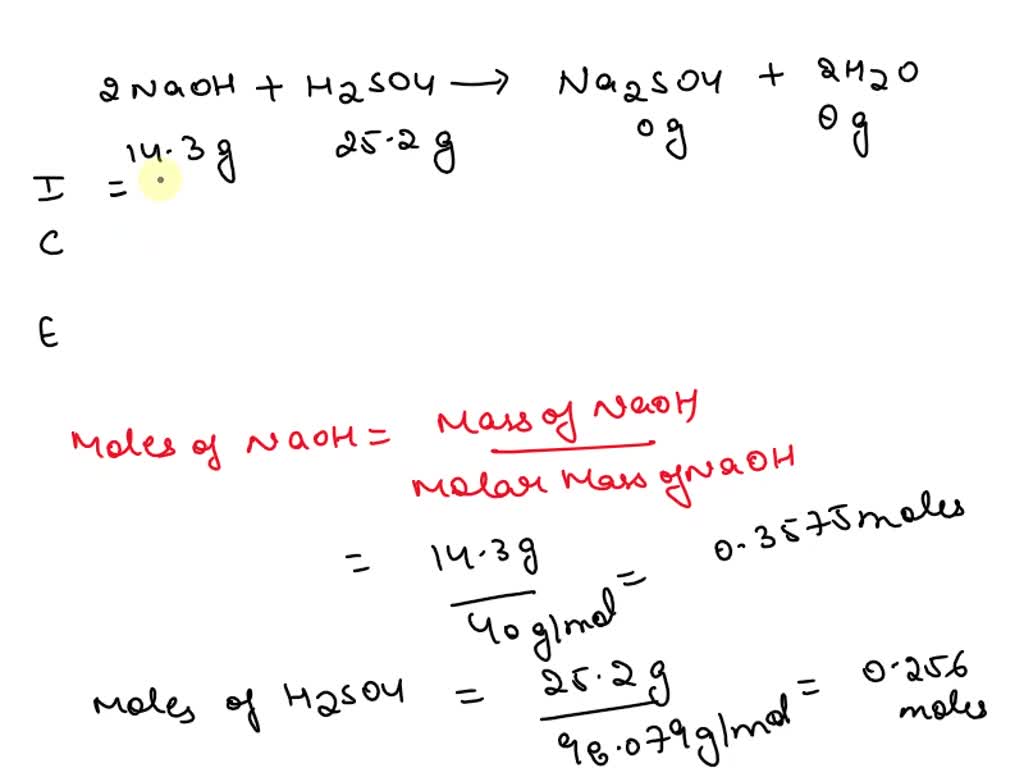 2NaOH + H2SO4 → Na2SO4 + 2H2O
14.3g 25.2 g 0g 0g
I =
C
E
Moles of NaOH = Mass of NaOH / Molar Mass of NaOH
= 14.3g / 40 g/mol = 0.3575 moles
Moles of H2SO4 = 25.2g / 98.079 g/mol = 0.256 moles